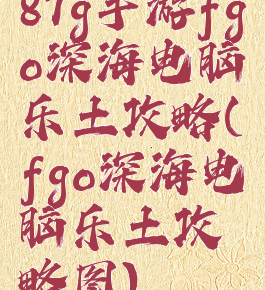 87g手游fg
o深海电脑
乐土攻略(
fgo深海电
脑乐土攻
略图)